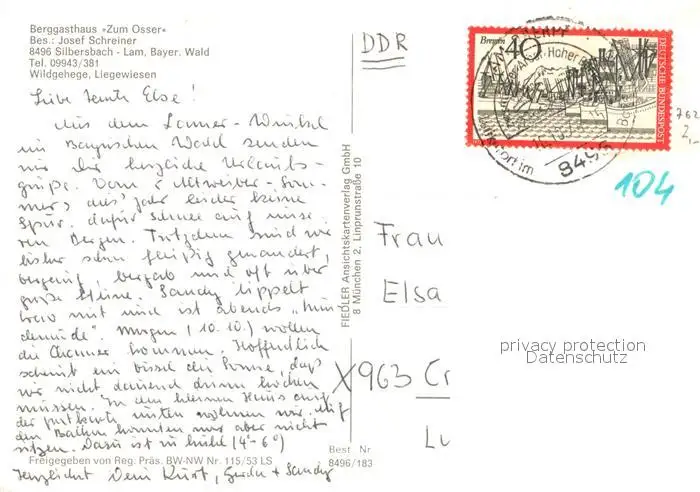 Berggasthaus »Zum Osser«
Bes.: Josef Schreiner
8496 Silbersbach - Lam, Bayer. Wald
Tel. 09943/381
Wildgehege, Liegewiesen
Liebe Tante Else!
Aus dem Lamer-Winkel
im Bayrischen Wald senden
wir Dir herzliche Urlaubs-
grüße. Vom Altweiber-Som-
mer, leider keine
Spur, dafür Schnee auf unse-
ren Bergen. Trotzdem sind wir
bisher schon fleißig gewandert,
bergauf, bergab und oft über
große Steine. Sandy tippelt
brav mit und ist abends „hun
demüde“. Morgen (10.10.) wollen
die Chamer kommen. Hoffentlich
scheint ein bissel die Sonne, daß
wir nicht dauernd drinn hocken
müssen. In dem kleinen Haus auf
der Postkarte unten wohnen wir. Auf
dem Balkon konnten wir aber nicht
sitzen. Dazu ist zu kühl (4°-6°)
Freigegeben von Reg. Präs. BW-NW Nr. 115/53 LS
Herzlichst Dein Kurt, Gerda + Sandy
Best Nr
8496/183
FIEDLER Ansichtskartenverlag GmbH
8 München 2, Linprunstraße 10
DDR
Bremen 40
DEUTSCHE BUNDESPOST
8496
762
2,-
104
Frau
Elsa
X963 Cr
Lu
privacy protection
Datenschutz